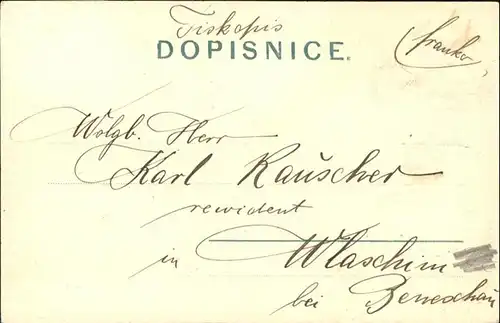 Tiskopis
DOPISNICE.
(franko)
Wolgb. Herr
Karl Rauscher
rewident
in Wlaschim
bei Beneschau